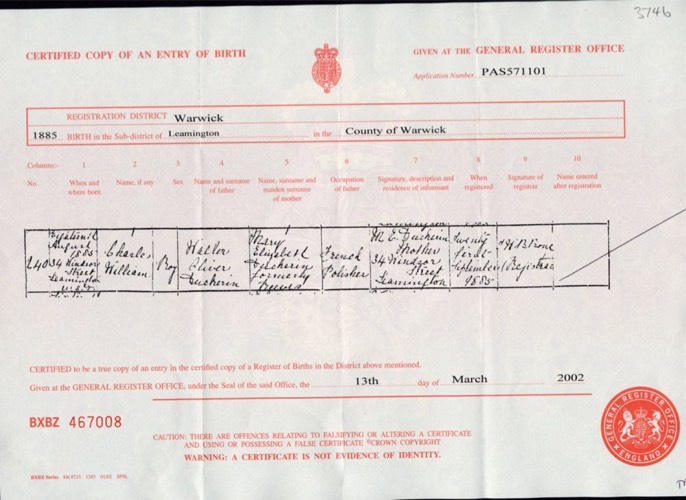 3746
CERTIFIED COPY OF AN ENTRY OF BIRTH
GIVEN AT THE GENERAL REGISTER OFFICE
Application Number PAS571101
REGISTRATION DISTRICT Warwick
1885 BIRTH in the Sub-district of Leamington in the County of Warwick
Columns:- 1 2 3 4 5 6 7 8 9 10
No. When and where born Name, if any Sex Name and surname of father Name, surname and maiden surname of mother Occupation of father Signature, description and residence of informant When registered Signature of registrar Name entered after registration
240
August
1885
34 Windsor
Street
Leamington
Charles
William
Boy
Oliver
Mary
Elizabeth
formerly
French
Polisher
M. E.
Mother
34 Windsor
Street
Leamington
Twenty
first
September
1885
Registrar
CERTIFIED to be a true copy of an entry in the certified copy of a Register of Births in the District above mentioned.
Given at the GENERAL REGISTER OFFICE, under the Seal of the said Office, the 13th day of March 2002
BXBZ 467008
CAUTION: THERE ARE OFFENCES RELATING TO FALSIFYING OR ALTERING A CERTIFICATE
AND USING OR POSSESSING A FALSE CERTIFICATE ©CROWN COPYRIGHT
WARNING: A CERTIFICATE IS NOT EVIDENCE OF IDENTITY.
GENERAL REGISTER OFFICE
ENGLAND
BXBZ Series